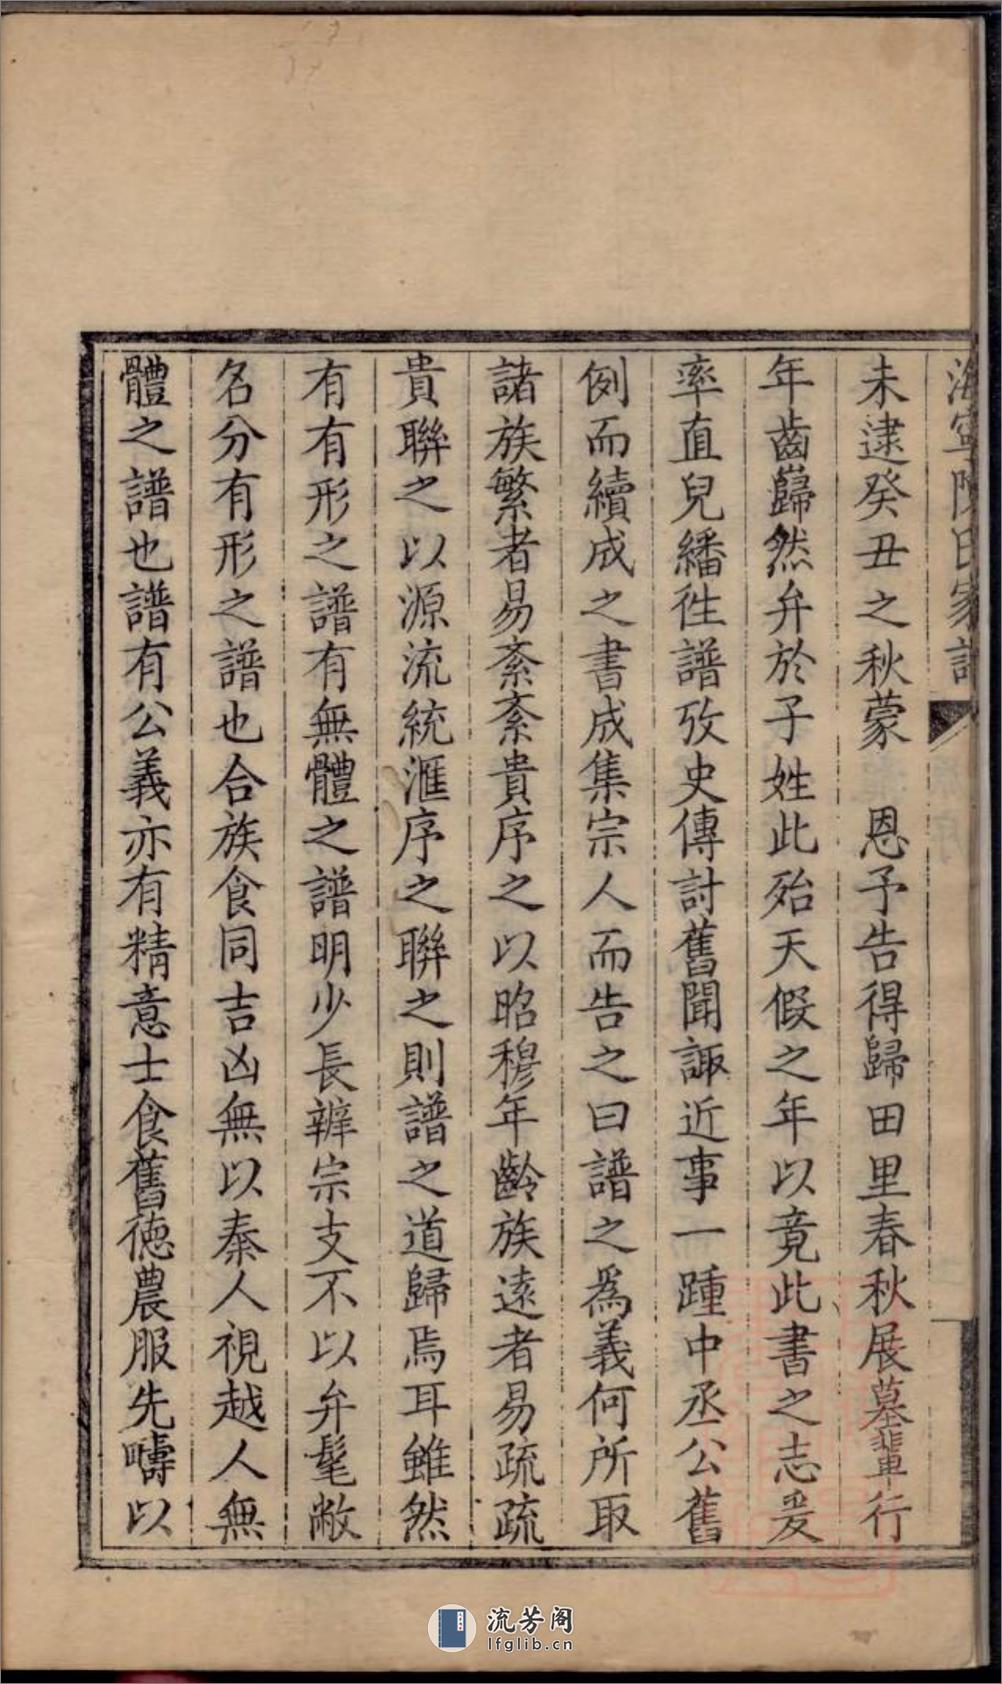 海寧陳氏家譜
未逮癸丑之秋蒙　恩予告得歸田里春秋展墓輩行
年齒巋然弁於子姓此殆天假之年以竟此書之志爰
率直兒繙徃譜攷史傳討舊聞諏近事一踵中丞公舊
例而續成之書成集宗人而告之曰譜之為義何所取
諸族繁者易紊紊貴序之以昭穆年齡族遠者易疏疏
貴聯之以源流統滙序之聯之則譜之道歸焉耳雖然
有有形之譜有無體之譜明少長辨宗支不以弁髦敝
名分有形之譜也合族食同吉凶無以秦人視越人無
體之譜也譜有公義亦有精意士食舊徳農服先疇以
流芳阁
lfglib.cn